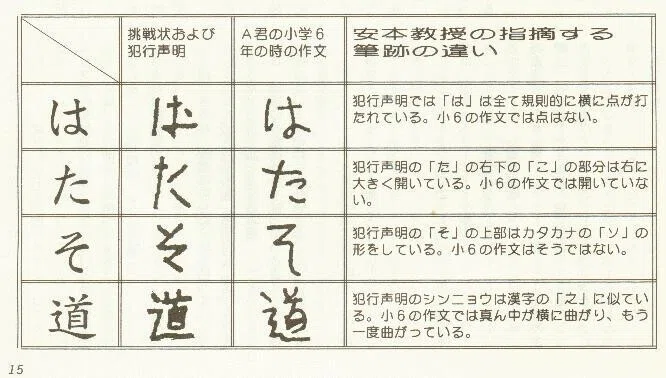 挑戦状および
犯行声明
A君の小学6
年の時の作文
安本教授の指摘する
筆跡の違い
は
は
は
犯行声明では「は」は全て規則的に横に点が打
たれている。小6の作文では点はない。
た
た
た
犯行声明の「た」の右下の「こ」の部分は右に
大きく開いている。小6の作文では開いていな
い。
そ
そ
そ
犯行声明の「そ」の上部はカタカナの「ソ」の
形をしている。小6の作文はそうではない。
道
道
道
犯行声明のシンニョウは漢字の「之」に似てい
る。小6の作文では真ん中が横に曲がり、もう
一度曲がっている。
15